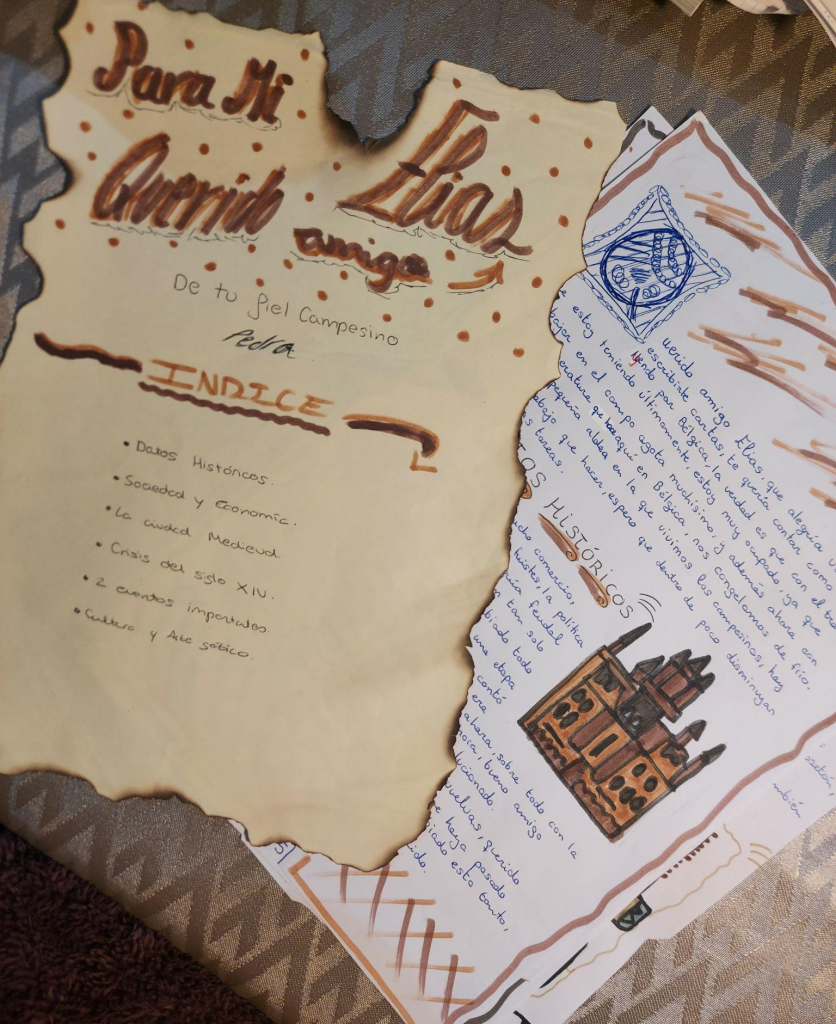 Para Mi
Querido Elias
amigo
De tu fiel Campesino
Pedro
INDICE
• Datos Históricos.
• Sociedad y Economía.
• La ciudad Medieval
• Crisis del siglo XIV.
• 2 eventos importantes
• Cultura y Arte gótico
uerido amigo Elias, que alegría
escribirte cartas, te quería contar como
yendo por Bélgica, la verdad es que con el
e estoy teniendo últimamente, estoy muy ocupado, ya que
bajar en el campo agota muchísimo, y además ahora con
eratura que aquí en Bélgica, nos congelamos de frío.
pequeña aldea en la que vivimos los campesinos, hay
abajo que hacer, espero que dentro de poco disminuyan
s tareas.
TOS HISTÓRICOS
cho comercio,
la política
feudal
n tan solo
biado todo
una etapa
contó
era
ahora, sobre todo con la
bueno amigo
licionado.
vuelvas, querido
e haya pasado
biado esto tanto,
ido.
mbién